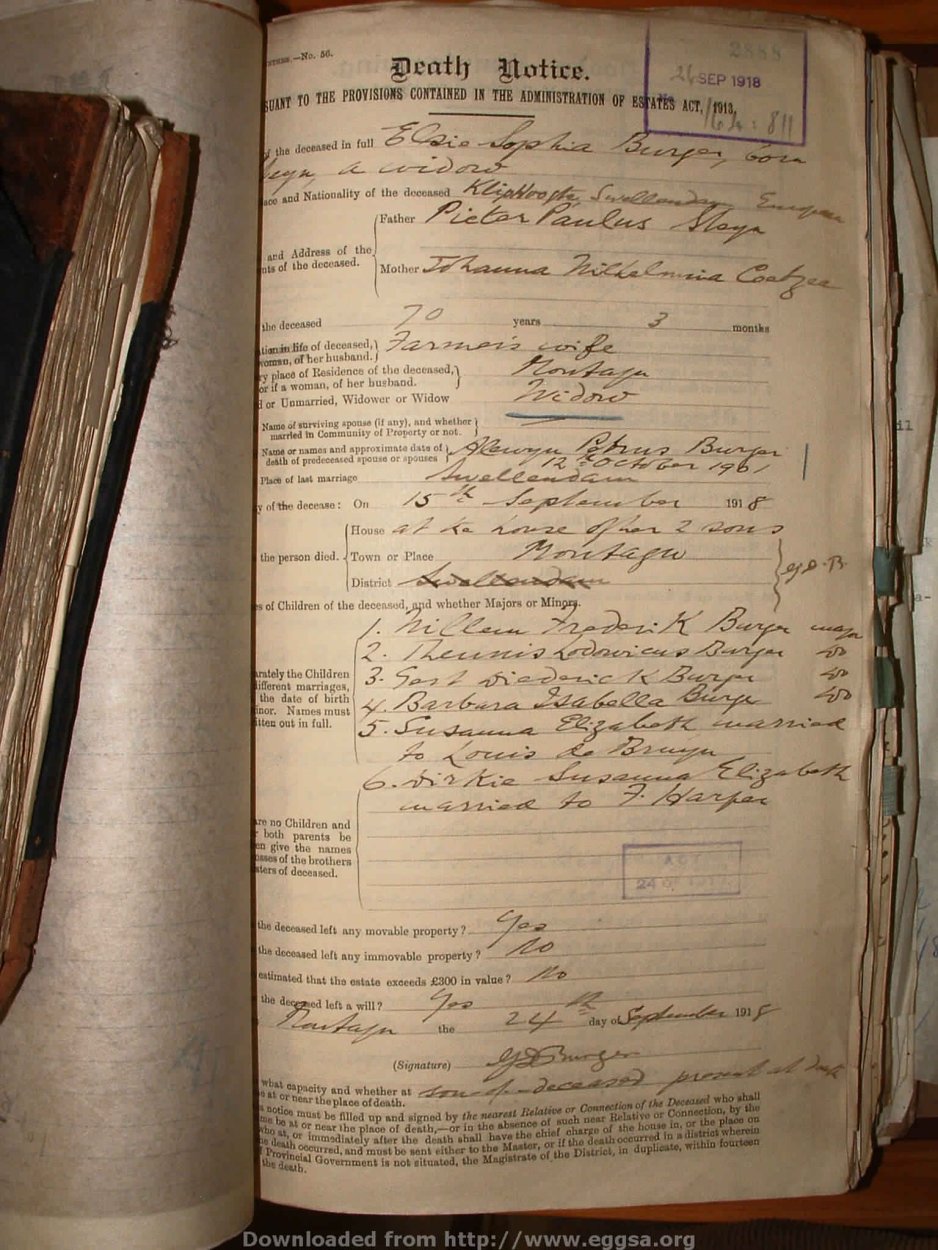 —No. 56.
Death Notice.
2888
26 SEP 1918
SUANT TO THE PROVISIONS CONTAINED IN THE ADMINISTRATION OF ESTATES ACT, 1913.
f the deceased in full Elsie Sophia Burger, born
a widow
ace and Nationality of the deceased Swellendam European
Father Pieter Paulus Steyn
and Address of the
nts of the deceased.
Mother Johanna Wilhelmina Coetzee
the deceased 70 years 3 months
tion in life of deceased, Farmer's wife
woman, of her husband.
y place of Residence of the deceased, Montagu
or if a woman, of her husband.
d or Unmarried, Widower or Widow Widow
Name of surviving spouse (if any), and whether
married in Community of Property or not.
Name or names and approximate date of Alewyn Petrus Burger
death of predeceased spouse or spouses 12th October 1901
Place of last marriage Swellendam
y of the decease: On 15th September 1918
House at the house of her 2 sons
the person died. Town or Place Montagu
District Swellendam
es of Children of the deceased, and whether Majors or Minors.
1. Willem Frederik Burger major
2. Theunis Lodowicus Burger do
arately the Children 3. Gert Diederick Burger do
different marriages,
the date of birth 4. Barbara Isabella Burger do
inor. Names must
itten out in full. 5. Susanna Elizabeth married
to Louis de Bruyn
6. Dirkie Susanna Elizabeth
married to F. Harper
are no Children and
both parents be
en give the names
osses of the brothers
sters of deceased.
the deceased left any movable property? Yes
the deceased left any immovable property? No
estimated that the estate exceeds £300 in value? No
the deceased left a will? Yes
Montagu the 24th day of September 1918
(Signature) G D Burger
what capacity and whether at son of deceased present at death
e at or near the place of death.
s notice must be filled up and signed by the nearest Relative or Connection of the Deceased who shall
me be at or near the place of death,—or in the absence of such near Relative or Connection, by the
who at, or immediately after the death shall have the chief charge of the house in, or the place on
he death occurred, and must be sent either to the Master, or if the death occurred in a district wherein
f Provincial Government is not situated, the Magistrate of the District, in duplicate, within fourteen
the death.
Downloaded from http://www.eggsa.org